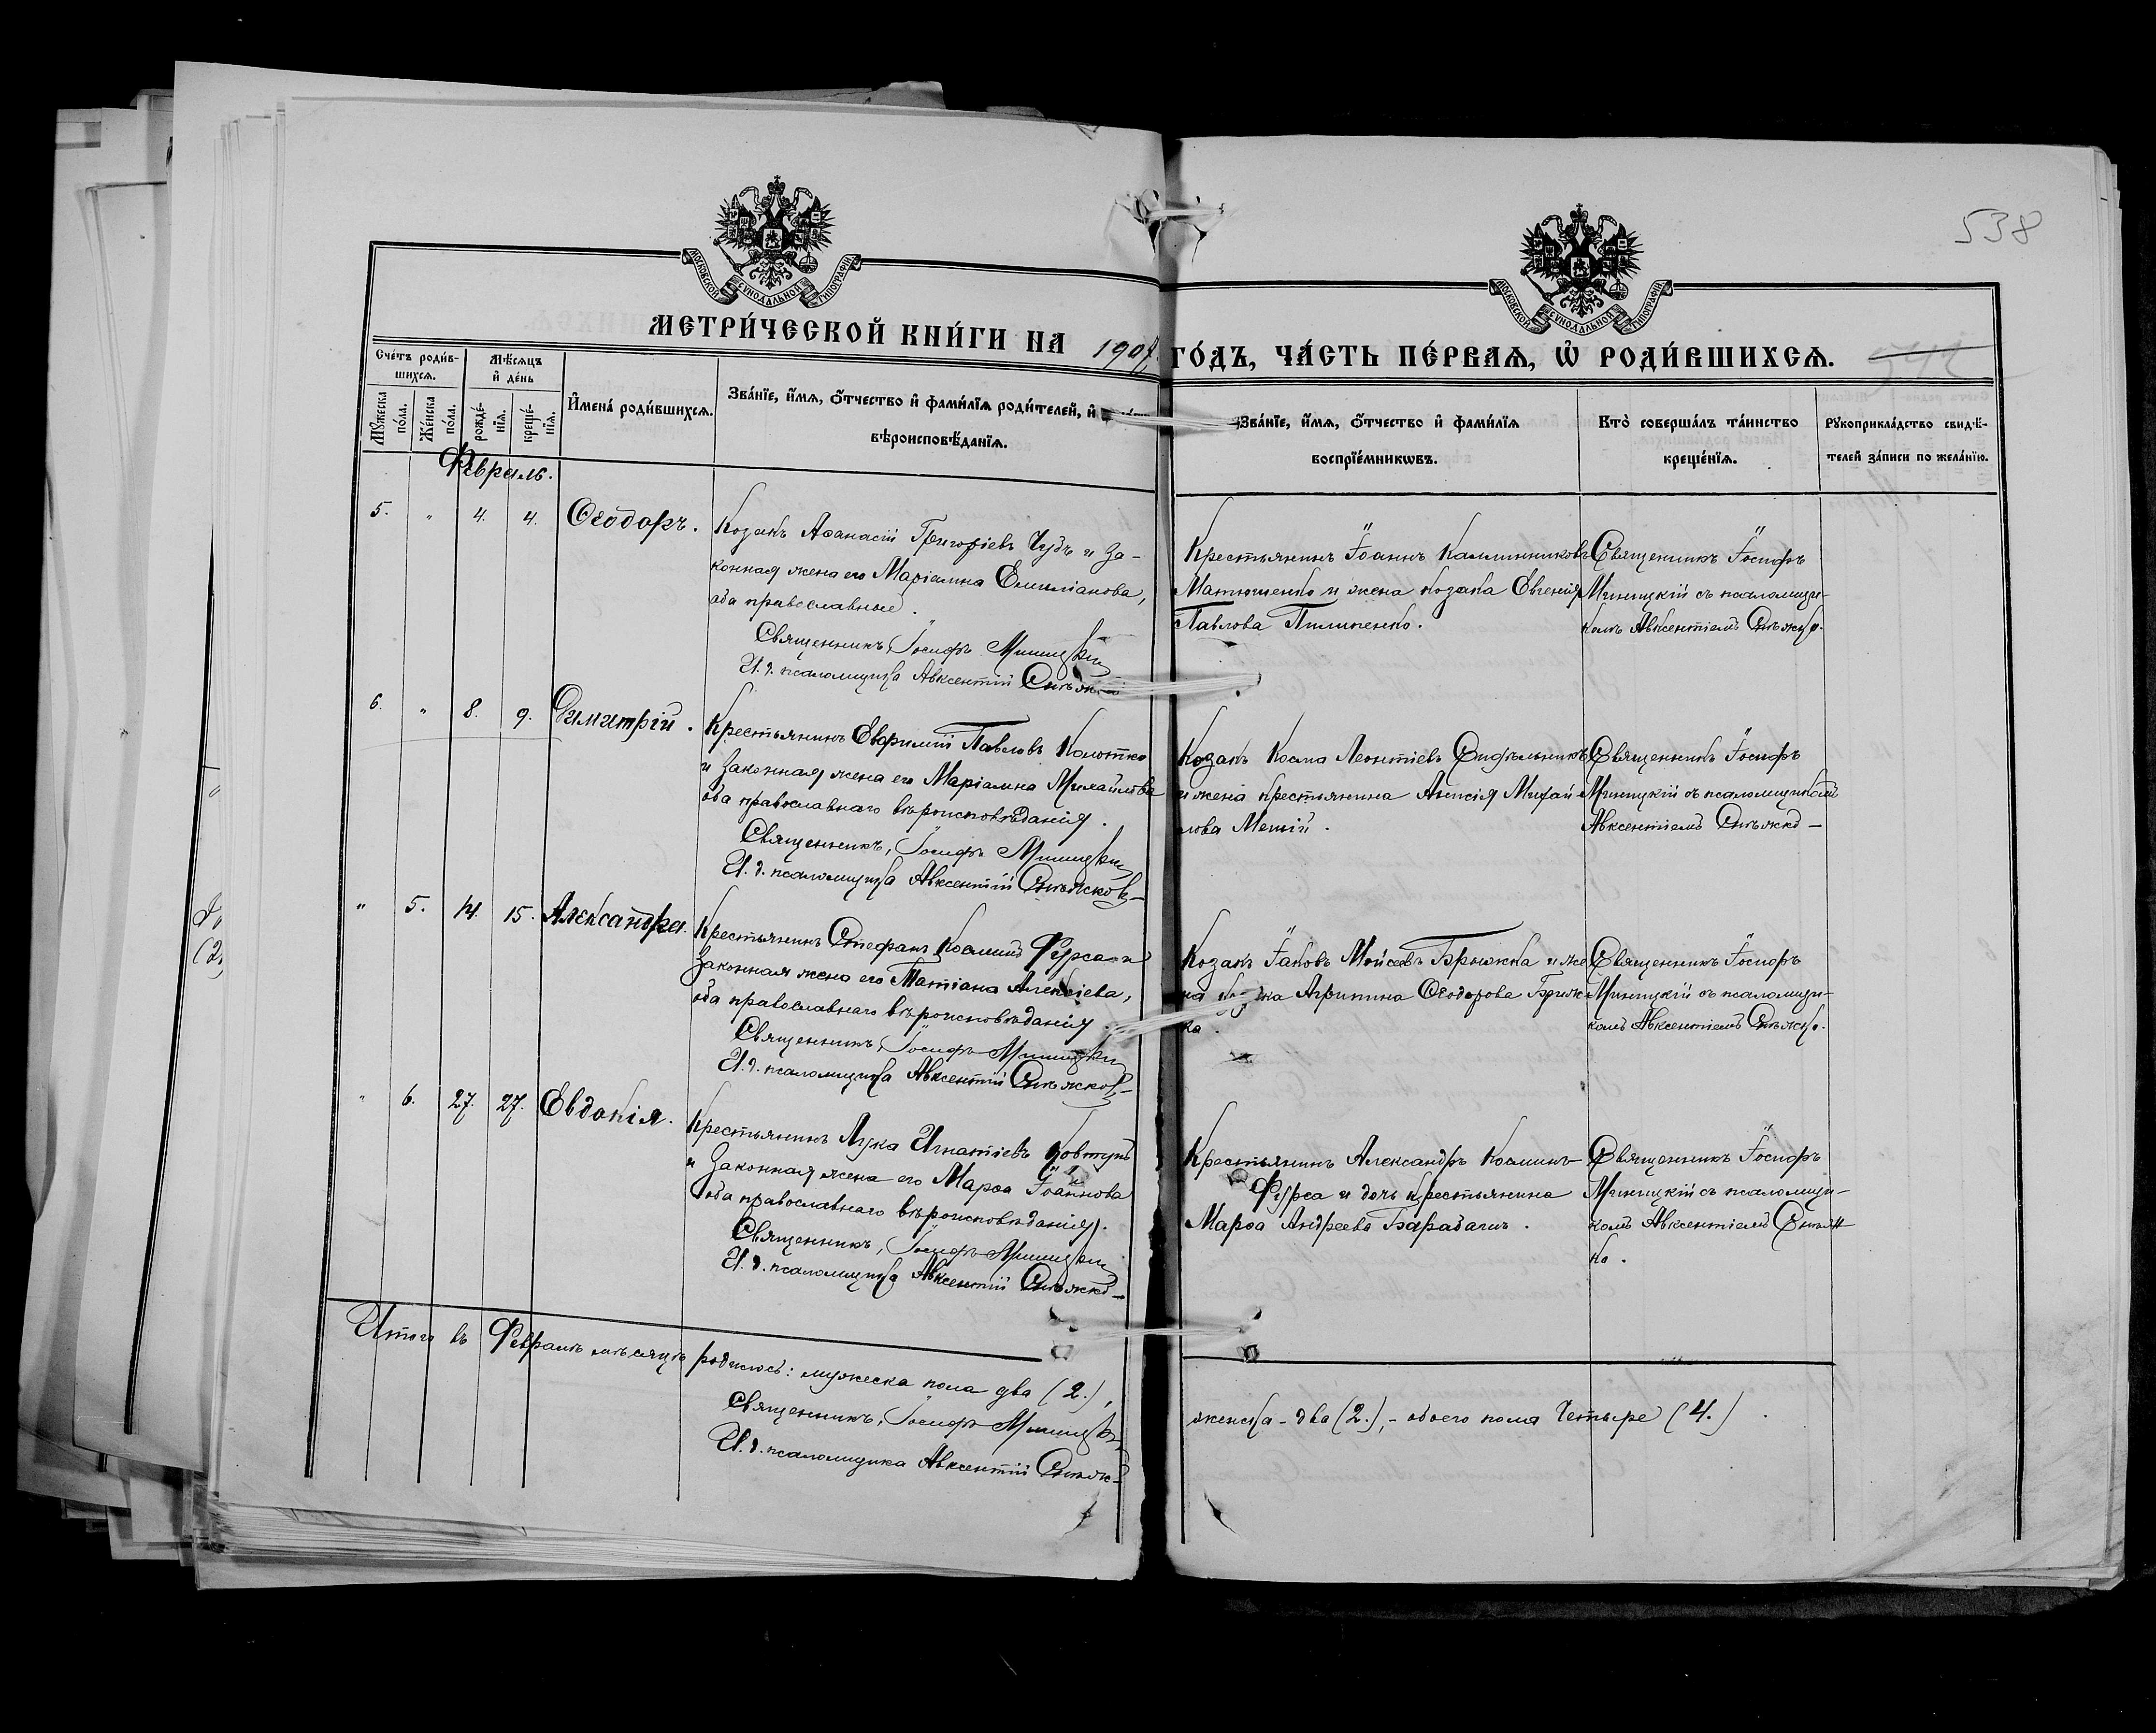 538
МОСКОВСКОЙ СѴНОДАЛЬНОЙ ТИПОГРАФІИ
МОСКОВСКОЙ СѴНОДАЛЬНОЙ ТИПОГРАФІИ
МЕТРИ́ЧЕСКОЙ КНИ́ГИ НА 1907
ГО́ДЪ, ЧА́СТЬ ПЕ́РВАѦ, Ѿ РОДИ́ВШИХСѦ.
Сче́тъ роди́в-
шихсѧ.
Мѣ́сѧцъ
и҆ де́нь
Мꙋ́жеска
по́ла.
Же́нска
по́ла.
рожде́-
нїѧ.
креще́-
нїѧ.
И҆мена̀ роди́вшихсѧ.
Зва́нїе, и҆́мѧ, ѻ҆́тчество и҆ фами́лїѧ роди́телей, и҆
вѣроисповѣ́данїѧ.
Зва́нїе, и҆́мѧ, ѻ҆́тчество и҆ фами́лїѧ
воспрїе́мникѡвъ.
Кто̀ соверша́лъ та́инство
креще́нїѧ.
Рꙋкоприкла́дство свидѣ́-
телей за́писи по жела́нїю.
Февраль.
5. " 4. 4. Ѳеодоръ.
Козакъ Аѳанасій Григоріевъ Чубъ и за-
конная жена его Маріанна Емиліанова,
оба православные.
Священникъ, Іосифъ Миницкій
И. д. псаломщика Авксентій
Крестьянинъ Іоаннъ Каллинниковъ
Матюшенко и жена козака Евгенія
Павлова Пилипенко.
Священникъ Іосифъ
Миницкій съ псаломщи-
комъ Авксентіемъ
6. " 8. 9. Димитрій.
Крестьянинъ Евфимій Павловъ
и законная жена его Маріанна Михайлова
оба православнаго вѣроисповѣданія.
Священникъ, Іосифъ Миницкій
И. д. псаломщика Авксентій
Козакъ Косма Леонтіевъ
и жена крестьянина Анисія Михай-
лова
Священникъ Іосифъ
Миницкій съ псаломщикомъ
Авксентіемъ
" 5. 14. 15. Александра.
Крестьянинъ Стефанъ Косминъ Фурса и
законная жена его Татіана Алексіева,
оба православнаго вѣроисповѣданія.
Священникъ, Іосифъ Миницкій
И. д. псаломщика Авксентій
Козакъ Іаковъ Моисеевъ Брюжка и же-
на Агрипина Ѳеодорова Брюж-
ка.
Священникъ Іосифъ
Миницкій съ псаломщи-
комъ Авксентіемъ
" 6. 27. 27. Евдокія.
Крестьянинъ Лука Игнатіевъ Ковтунъ
и законная жена его Марѳа Іоаннова
оба православнаго вѣроисповѣданія.
Священникъ, Іосифъ Миницкій
И. д. псаломщика Авксентій
Крестьянинъ Александръ Косминъ
Фурса и дочь крестьянина
Марѳа Андреева Барабашъ.
Священникъ Іосифъ
Миницкій съ псаломщи-
комъ Авксентіемъ
ко.
Итого въ Февралѣ мѣсяцѣ родилось: мужеска пола два (2.),
женска - два (2.), - обоего пола Четыре (4.)
Священникъ, Іосифъ Миницкій
И. д. псаломщика Авксентій